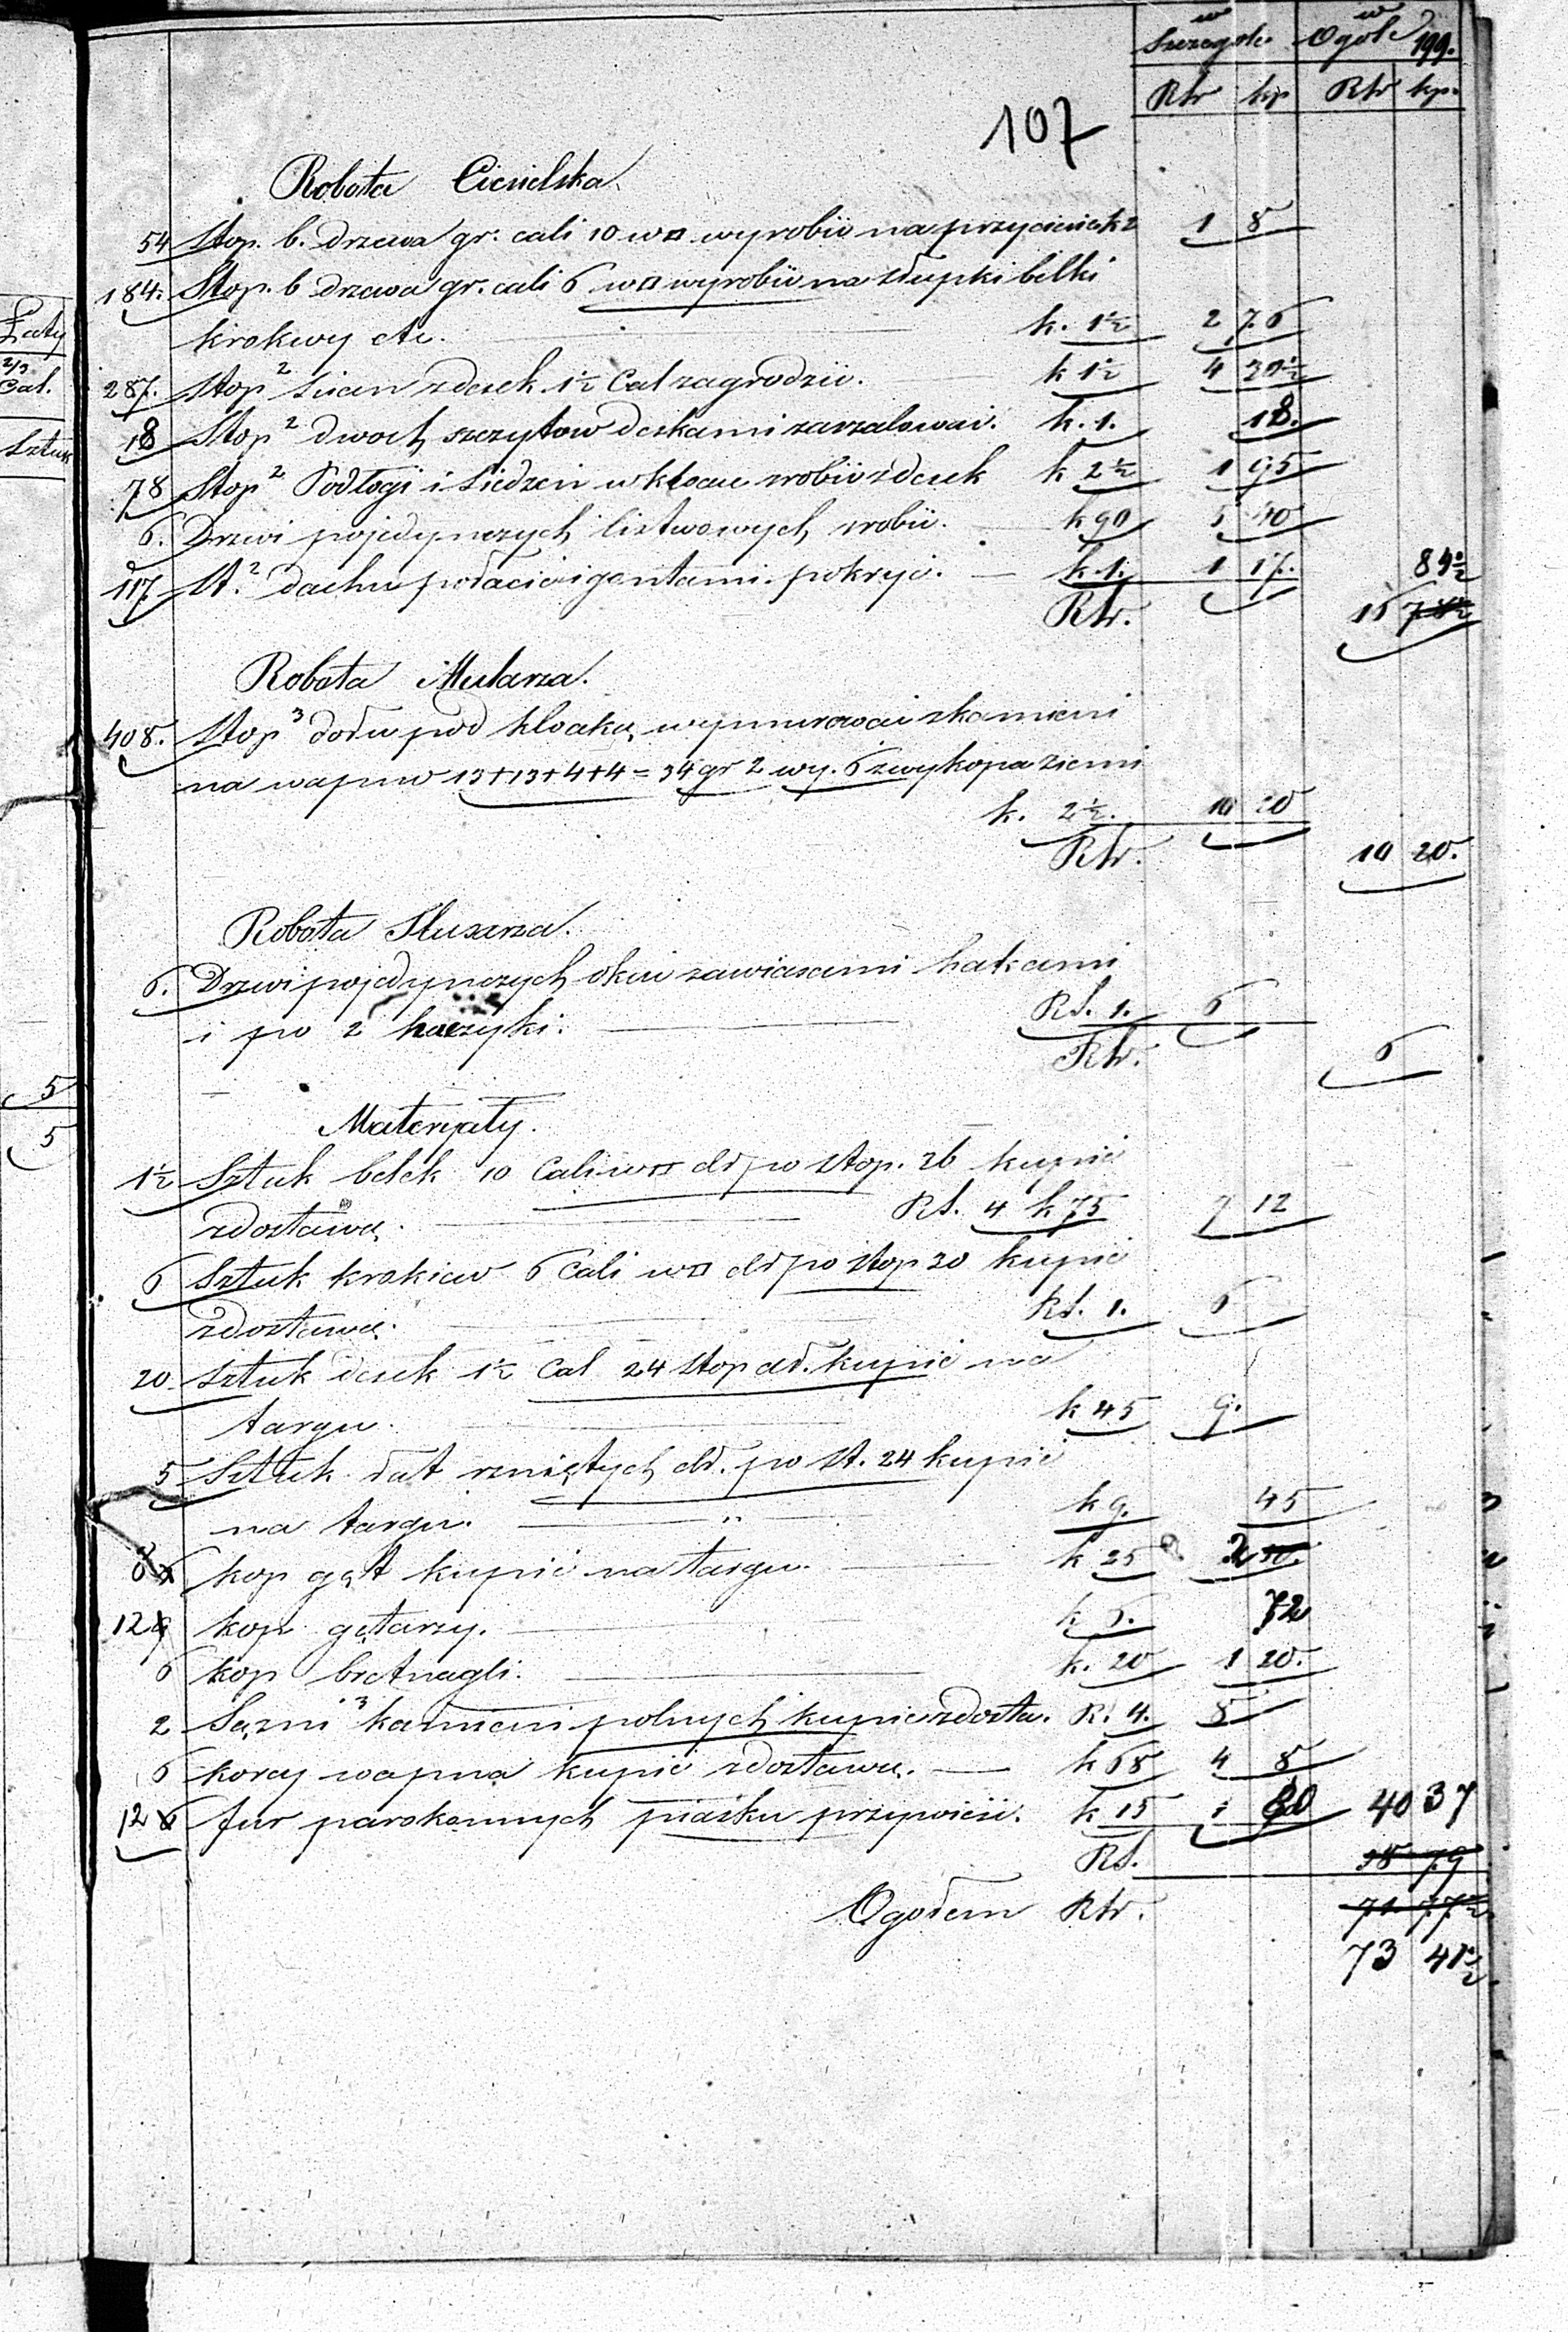 w w
Szczegole Ogole 199.
Rbr kp Rbr kp.
107
Robota Ciesielska
54 Stop. b. drzewa gr. cali 10 w□ wyrobić na przyciesiek 2 1 8
184. Stop. b drzewa gr. cali 6 w□ wyrobić na słupki belki
krokwy etc. k. 1½ 2 76
287. Stop² scian zdesek 1½ Cal zagrodzić. k 1½ 4 30½
18 Stop² dwoch szczytow deskami zarzalować. k. 1. 18.
78 Stop² Podłogi i siedzeń w kloace zrobić z desek k 2½ 1 95
6. Drzwi pojedynczych listwowych zrobić. k 90 5 40
117 St.² dachu połacie gontami pokryć. k 1. 1 17. 84½
Rbr. 16
Robota Mularza.
408. Stop³ dołu pod kloakę wymurować z kamieni
na wapno 13+13+4+4=34 gr 2 wy. 6 z wykopa ziemi
k. 2½. 10 20
Rbr. 10 20.
Robota Slusarza.
6. Drzwi pojedynczych okuć zawiasami hakami
i po 2 haczyki. Rs. 1. 6
Rbr. 6
Materyały.
1½ Sztuk belek 10 Cali w□ dł po stop. 26 kupić
zdostawą. Rs. 4 k 75 7 12
6 Sztuk krokiew 6 Cali w□ dł po stop 30 kupić
zdostawą. Rs. 1. 6
20 Sztuk desek 1½ Cal 24 stop dł. kupić na
targu. k 45 9.
5 Sztuk łat rzniętych dł. po st. 24 kupić
na targu. " k 9. 45
8 kop gąt kupić na targu. k 25 2
12 kop gętarzy. k 6. 72
6 kop bretnagli. k. 20 1 20.
2 Sązni³ kamieni polnych kupić zdosta. R. 4. 8
6 korcy wapna kupić zdostawą. k 68 4 8
12 fur parokonnych piasku przywieść. k 15 1 80 40 37
Rs. 38 79
Ogołem Rbr. 71 77½
73 41½
Łaty
2/3
Cal.
Sztuk
5
5